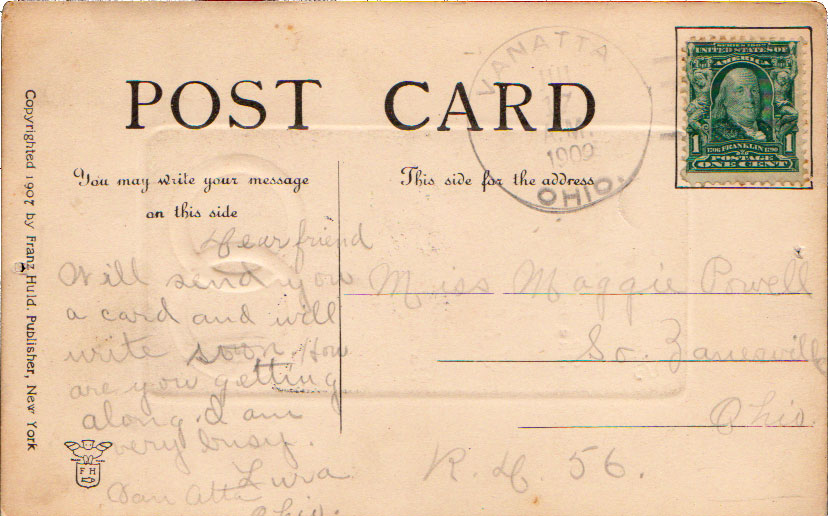 POST CARD
You may write your message
on this side
This side for the address
Copyrighted 1907 by Franz Huld. Publisher, New York
VANATTA
1909
OHIO.
SERIES 1902
UNITED STATES OF
AMERICA
1 1
1706 FRANKLIN 1790
POSTAGE
ONE CENT
Dear friend
Will send you
a card and will
write soon. How
are you getting
along. I am
very busy.
Lura
Van Atta
Ohio.
Miss Maggie Powell
So. Zanesville
Ohio.
R. D. 56.
F H